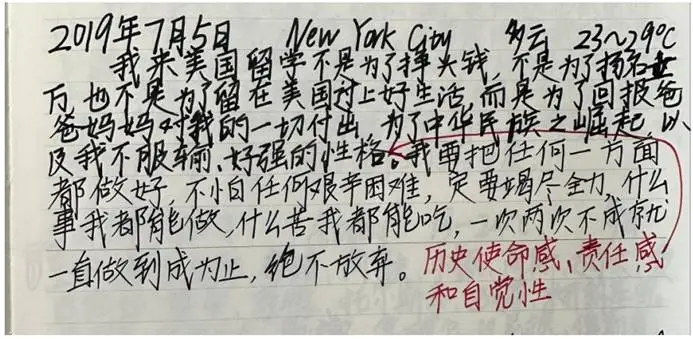 2019年7月5日 New York City 多云 23~29℃
我来美国留学不是为了挣大钱,不是为了扬名立
万,也不是为了留在美国过上好生活,而是为了回报爸
爸妈妈对我的一切付出,为了中华民族之崛起,以
及我不服输、好强的性格。我要把任何一方面
都做好,不怕任何艰辛困难,一定要竭尽全力,什么
事我都能做,什么苦我都能吃,一次两次不成就
一直做到成为止,绝不放弃。
历史使命感、责任感
和自觉性